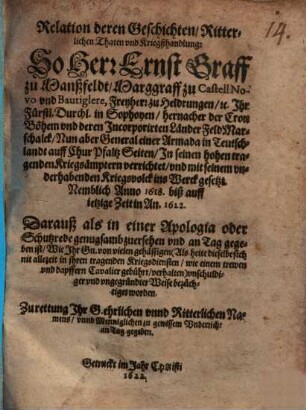 14.
Relation deren Geschichten/ Ritter-
lichen Thaten und Kriegßhandlung:
So Herr Ernst Graff
zu Manßfeldt/ Marggraff zu Castell No-
vo und Bautiglere, Freyherr zu Heldrungen/ ꝛc. Ihr
Fürstl. Durchl. in Sophoyen/ hernacher der Cron
Böhem und deren Incorporirten Länder Feld Mar-
schalck/ Nun aber General einer Armada in Teutsch-
landt auff Chur Pfaltz Seiten/ In seinen hohen tra-
genden Kriegsämptern verrichtet/ und mit seinem un-
derhabenden Kriegsvolck ins Werck gesetzt.
Nemblich Anno 1618. biß auff
jetzige Zeit in An. 1622.
Darauß als in einer Apologia oder
Schutzrede genugsamb zuersehen vnd an Tag gege-
ben ist/ Wie Ihr Gn. von vielen gehässigen/ Als hette dieselbe sich
nit allezeit in ihren tragenden Kriegsdiensten/ wie einem trewen
und dapffern Cavalier gebührt/ verhalten/ vnschuldi-
ger vnd vngegründter Weise bezüch-
tiget worden.
Zu rettung Ihr G. ehrlichen vnnd Ritterlichen Na-
mens/ vnnd Männiglichen zu gewissem Vnderricht
an Tag gegeben.
Getruckt im Jahr Christi
1622.